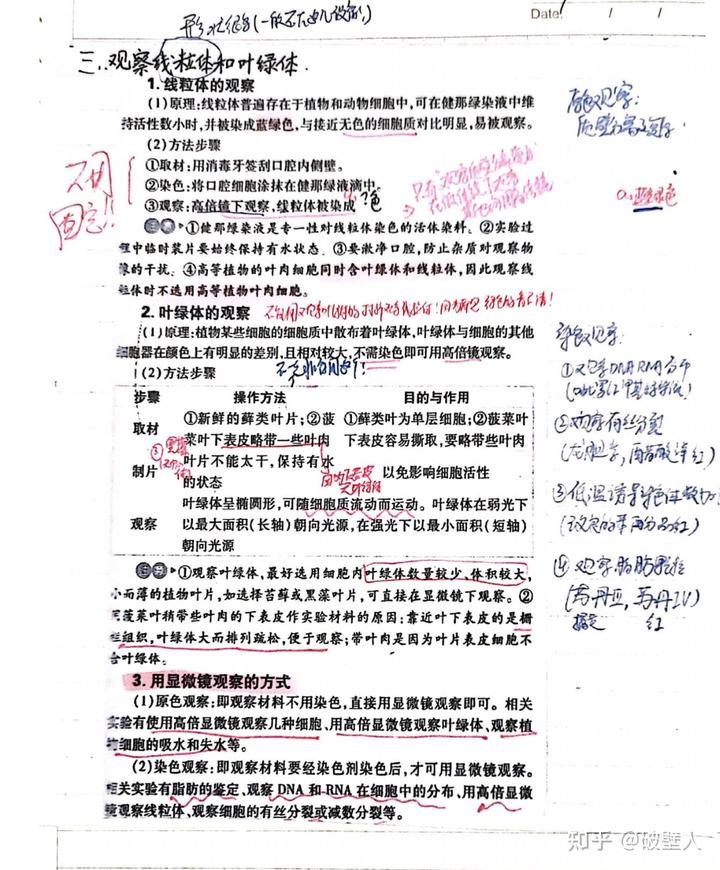 Date: / /
三、观察线粒体和叶绿体.
1. 线粒体的观察
(1)原理:线粒体普遍存在于植物和动物细胞中,可在健那绿染液中维
持活性数小时,并被染成蓝绿色,与接近无色的细胞质对比明显,易被观察。
(2)方法步骤
①取材:用消毒牙签刮口腔内侧壁。
②染色:将口腔细胞涂抹在健那绿液滴中。
③观察:高倍镜下观察,线粒体被染成 色
不用
固定!!
①健那绿染液是专一性对线粒体染色的活体染料。②实验过
程中临时装片要始终保持有水状态。③要漱净口腔,防止杂质对观察物
像的干扰。④高等植物的叶肉细胞同时含叶绿体和线粒体,因此观察线
粒体时不选用高等植物叶肉细胞。
2. 叶绿体的观察
(1)原理:植物某些细胞的细胞质中散布着叶绿体,叶绿体与细胞的其他
细胞器在颜色上有明显的差别,且相对较大,不需染色即可用高倍镜观察。
(2)方法步骤
步骤 操作方法 目的与作用
取材 ①新鲜的藓类叶片;②菠菜叶下表皮略带一些叶肉 ①藓类叶为单层细胞;②菠菜叶下表皮容易撕取,要略带些叶肉
制片 叶片不能太干,保持有水的状态 以免影响细胞活性
观察 叶绿体呈椭圆形,可随细胞质流动而运动。叶绿体在弱光下
以最大面积(长轴)朝向光源,在强光下以最小面积(短轴)
朝向光源
①观察叶绿体,最好选用细胞内叶绿体数量较少,体积较大,
小而薄的植物叶片,如选择苔藓或黑藻叶片,可直接在显微镜下观察。②
用菠菜叶稍带些叶肉的下表皮作实验材料的原因:靠近叶下表皮的是栅
栏组织,叶绿体大而排列疏松,便于观察;带叶肉是因为叶片表皮细胞不
含叶绿体。
3. 用显微镜观察的方式
(1)原色观察:即观察材料不用染色,直接用显微镜观察即可。相关
实验有使用高倍显微镜观察几种细胞、用高倍显微镜观察叶绿体、观察植
物细胞的吸水和失水等。
(2)染色观察:即观察材料要经染色剂染色后,才可用显微镜观察。
相关实验有脂肪的鉴定、观察 DNA 和 RNA 在细胞中的分布、用高倍显微
镜观察线粒体、观察细胞的有丝分裂或减数分裂等。
蓝绿色
①观察DNA RNA分布
②观察有丝分裂
(龙胆紫,醋酸洋红)
④观察脂肪颗粒
(苏丹Ⅲ,苏丹Ⅳ)
红
知乎 @破壁人